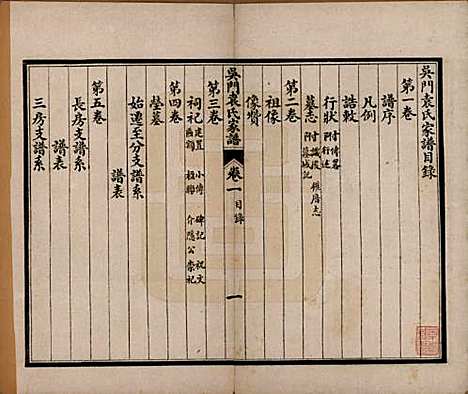 吳門袁氏家譜目錄
第一卷
譜序
凡例
誥敕
行狀 附傳畧 附行述
墓志 附識段 附墓城記 槨唐志
第二卷
祖像
像贊
吳門袁氏家譜 卷一 目錄 一
第三卷
祠祀 定置 小傳 碑記 祝文 匾額 楹聯 介隱公崇祀
第四卷
塋墓
始遷至分支譜系
譜表
第五卷
長房支譜系
譜表
三房支譜系